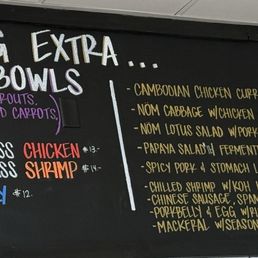 G EXTRA...
BOWLS
ROUTS,
D CARROTS,
SS CHICKEN $13-
SS SHRIMP $14-
Y $12-
- CAMBODIAN CHICKEN CURR
- NOM CABBAGE W/CHICKEN
- NOM LOTUS SALAD W/PORK
- PAPAYA SALAD & FERMENT
- SPICY PORK & STOMACH L
- CHILLED SHRIMP W/KOH
- CHINESE SAUSAGE, SPAM
- PORKBELLY & EGG W/
- MACKERAL W/SEASON